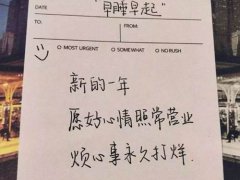 "早睡早起"
DATE
TO:
FROM:
MOST URGENT SOMEWHAT NO RUSH
新的一年
愿好心情照常营业
烦心事永久打烊.